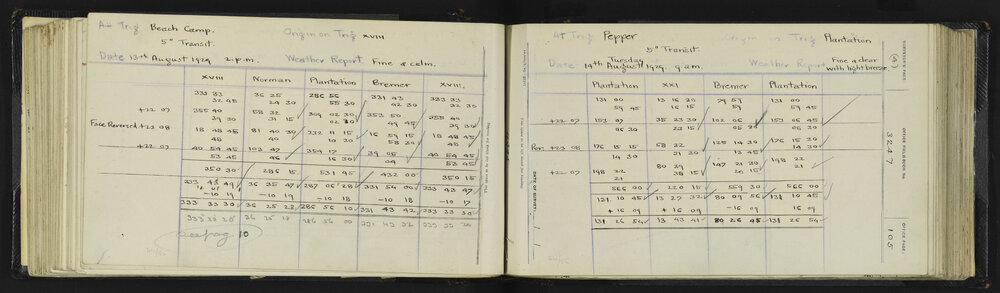 At Trig Beach Camp. Origin on Trig XVIII
5" Transit.
Date 13th August 1929 2 p.m. Weather Report Fine & calm.
XVIII Norman Plantation Bremer XVIII
333 33 36 25 286 56 331 43 333 33
32 45 24 30 55 30 42 30 32 30
+22 07 355 40 58 32 309 02 30 353 50 355 40
39 30 31 15 02 30 49 45 39 30
Face Reversed +22 08 18 48 45 81 40 30 332 11 15 16 59 15 18 48 45
48 40 10 30 58 30 48
+22 07 40 54 45 103 47 354 17 39 05 40 54 45
53 45 46 16 30 04 53 45
350 30 286 15 531 45 432 00 350 15
333 43 49 36 35 47 287 06 28 331 54 00 333 43 47
-10 19 -10 19 -10 18 -10 18 -10 17
333 33 30 36 25 28 286 56 10 331 43 42 333 33 30
333 33 20 36 25 18 286 56 00 331 43 32 333 33 20
see pag 10
At Trig Pepper Origin on Trig Plantation
5" Transit.
Date Tuesday 14th August 1929. 9 a.m. Weather Report Fine & clear with light breeze
Plantation XXI Bremer Plantation
131 00 13 16 20 79 59 131 00
59 45 16 15 59 45
+22 07 153 07 35 23 30 102 06 153 06 45
06 30 23 15 05 30 06 30
Rev. +23 08 176 15 15 58 32 125 14 30 176 15 30
14 30 31 30 13 45 14 30
+22 07 198 22 80 39 147 21 30 198 22
21 38 15 20 15 21
566 00 220 15 559 30 566 00
131 10 45 13 27 32 80 09 56 131 10 45
+16 09 +16 09 16 09 16 09
131 26 54 13 43 41 80 26 45 131 26 54
DATE OF SURVEY / /
(A)
OFFICE FIELDBOOK No. 3247
OFFICE PAGE: 105